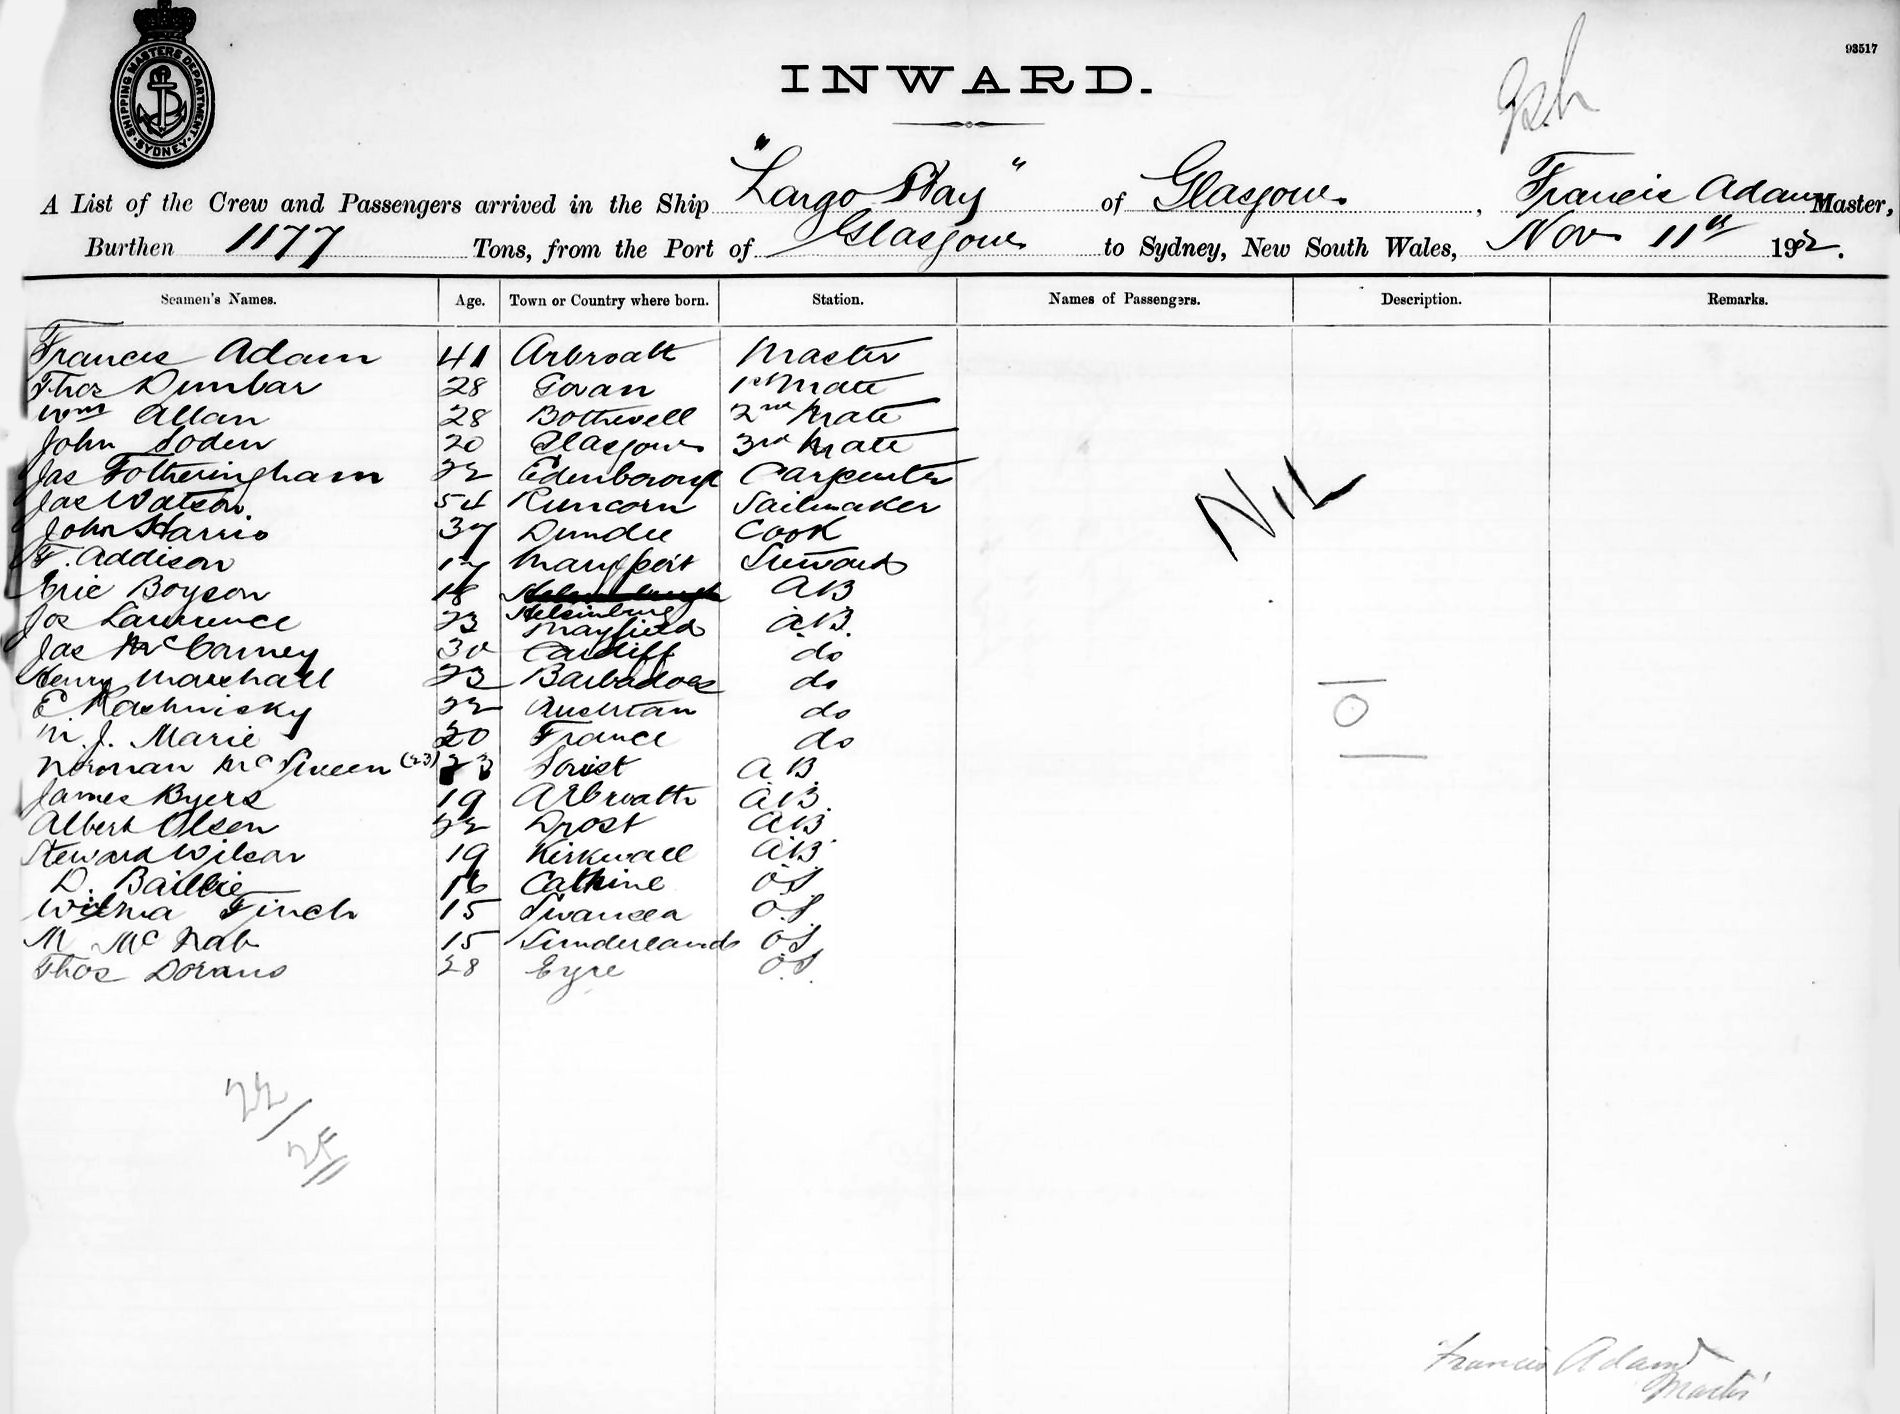 SHIPPING MASTERS DEPARTMENT
SYDNEY
93517
INWARD.
A List of the Crew and Passengers arrived in the Ship "Largo Bay" of Glasgow, Francis Adam Master,
Burthen 1177 Tons, from the Port of Glasgow to Sydney, New South Wales, Nov 11th 1902.
Seamen's Names. Age. Town or Country where born. Station. Names of Passengers. Description. Remarks.
Francis Adam 41 Arbroath Master
Thos Dunbar 28 Govan 1st Mate
Wm Allan 28 Bothwell 2nd Mate
John Soden 20 Glasgow 3rd Mate
Jas Fotheringham 22 Edenborough Carpenter
Jas Watson 54 Runcorn Sailmaker
John Harris 37 Dundee Cook
F. Addison 17 Maryport Steward
Eric Boyson 18 Helsinburg AB
Jos Lawrence 23 Mayfield AB
Jas McCarney 30 Cardiff do
Henry Marshall 23 Barbadoes do
E. Rashnisky 22 Austrian do
M. J. Marie 20 France do
Norman McSween (23) 23 AB
James Byers 19 Arbroath AB
Albert Olsen 22 AB
Steward Wilson 19 Kirkwall AB
D. Baillie 16 Catrine OS
Wilma Finch 15 Swansea O.S.
M McNab 15 Sunderland OS
Thos Dorans 28 Eyre O.S
NIL
O
22
Francis Adam
Master